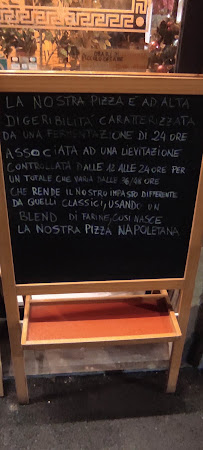 LA NOSTRA PIZZA E' AD ALTA
DIGERIBILITA' CARATTERIZZATA
DA UNA FERMENTAZIONE DI 24 ORE
ASSOCIATA AD UNA LIEVITAZIONE
CONTROLLATA DALLE 12 ALLE 24 ORE PER
UN TOTALE CHE VARIA DALLE 36/48 ORE
CHE RENDE IL NOSTRO IMPASTO DIFFERENTE
DA QUELLI CLASSICI, USANDO UN
BLEND DI FARINE, COSI NASCE
LA NOSTRA PIZZA NAPOLETANA